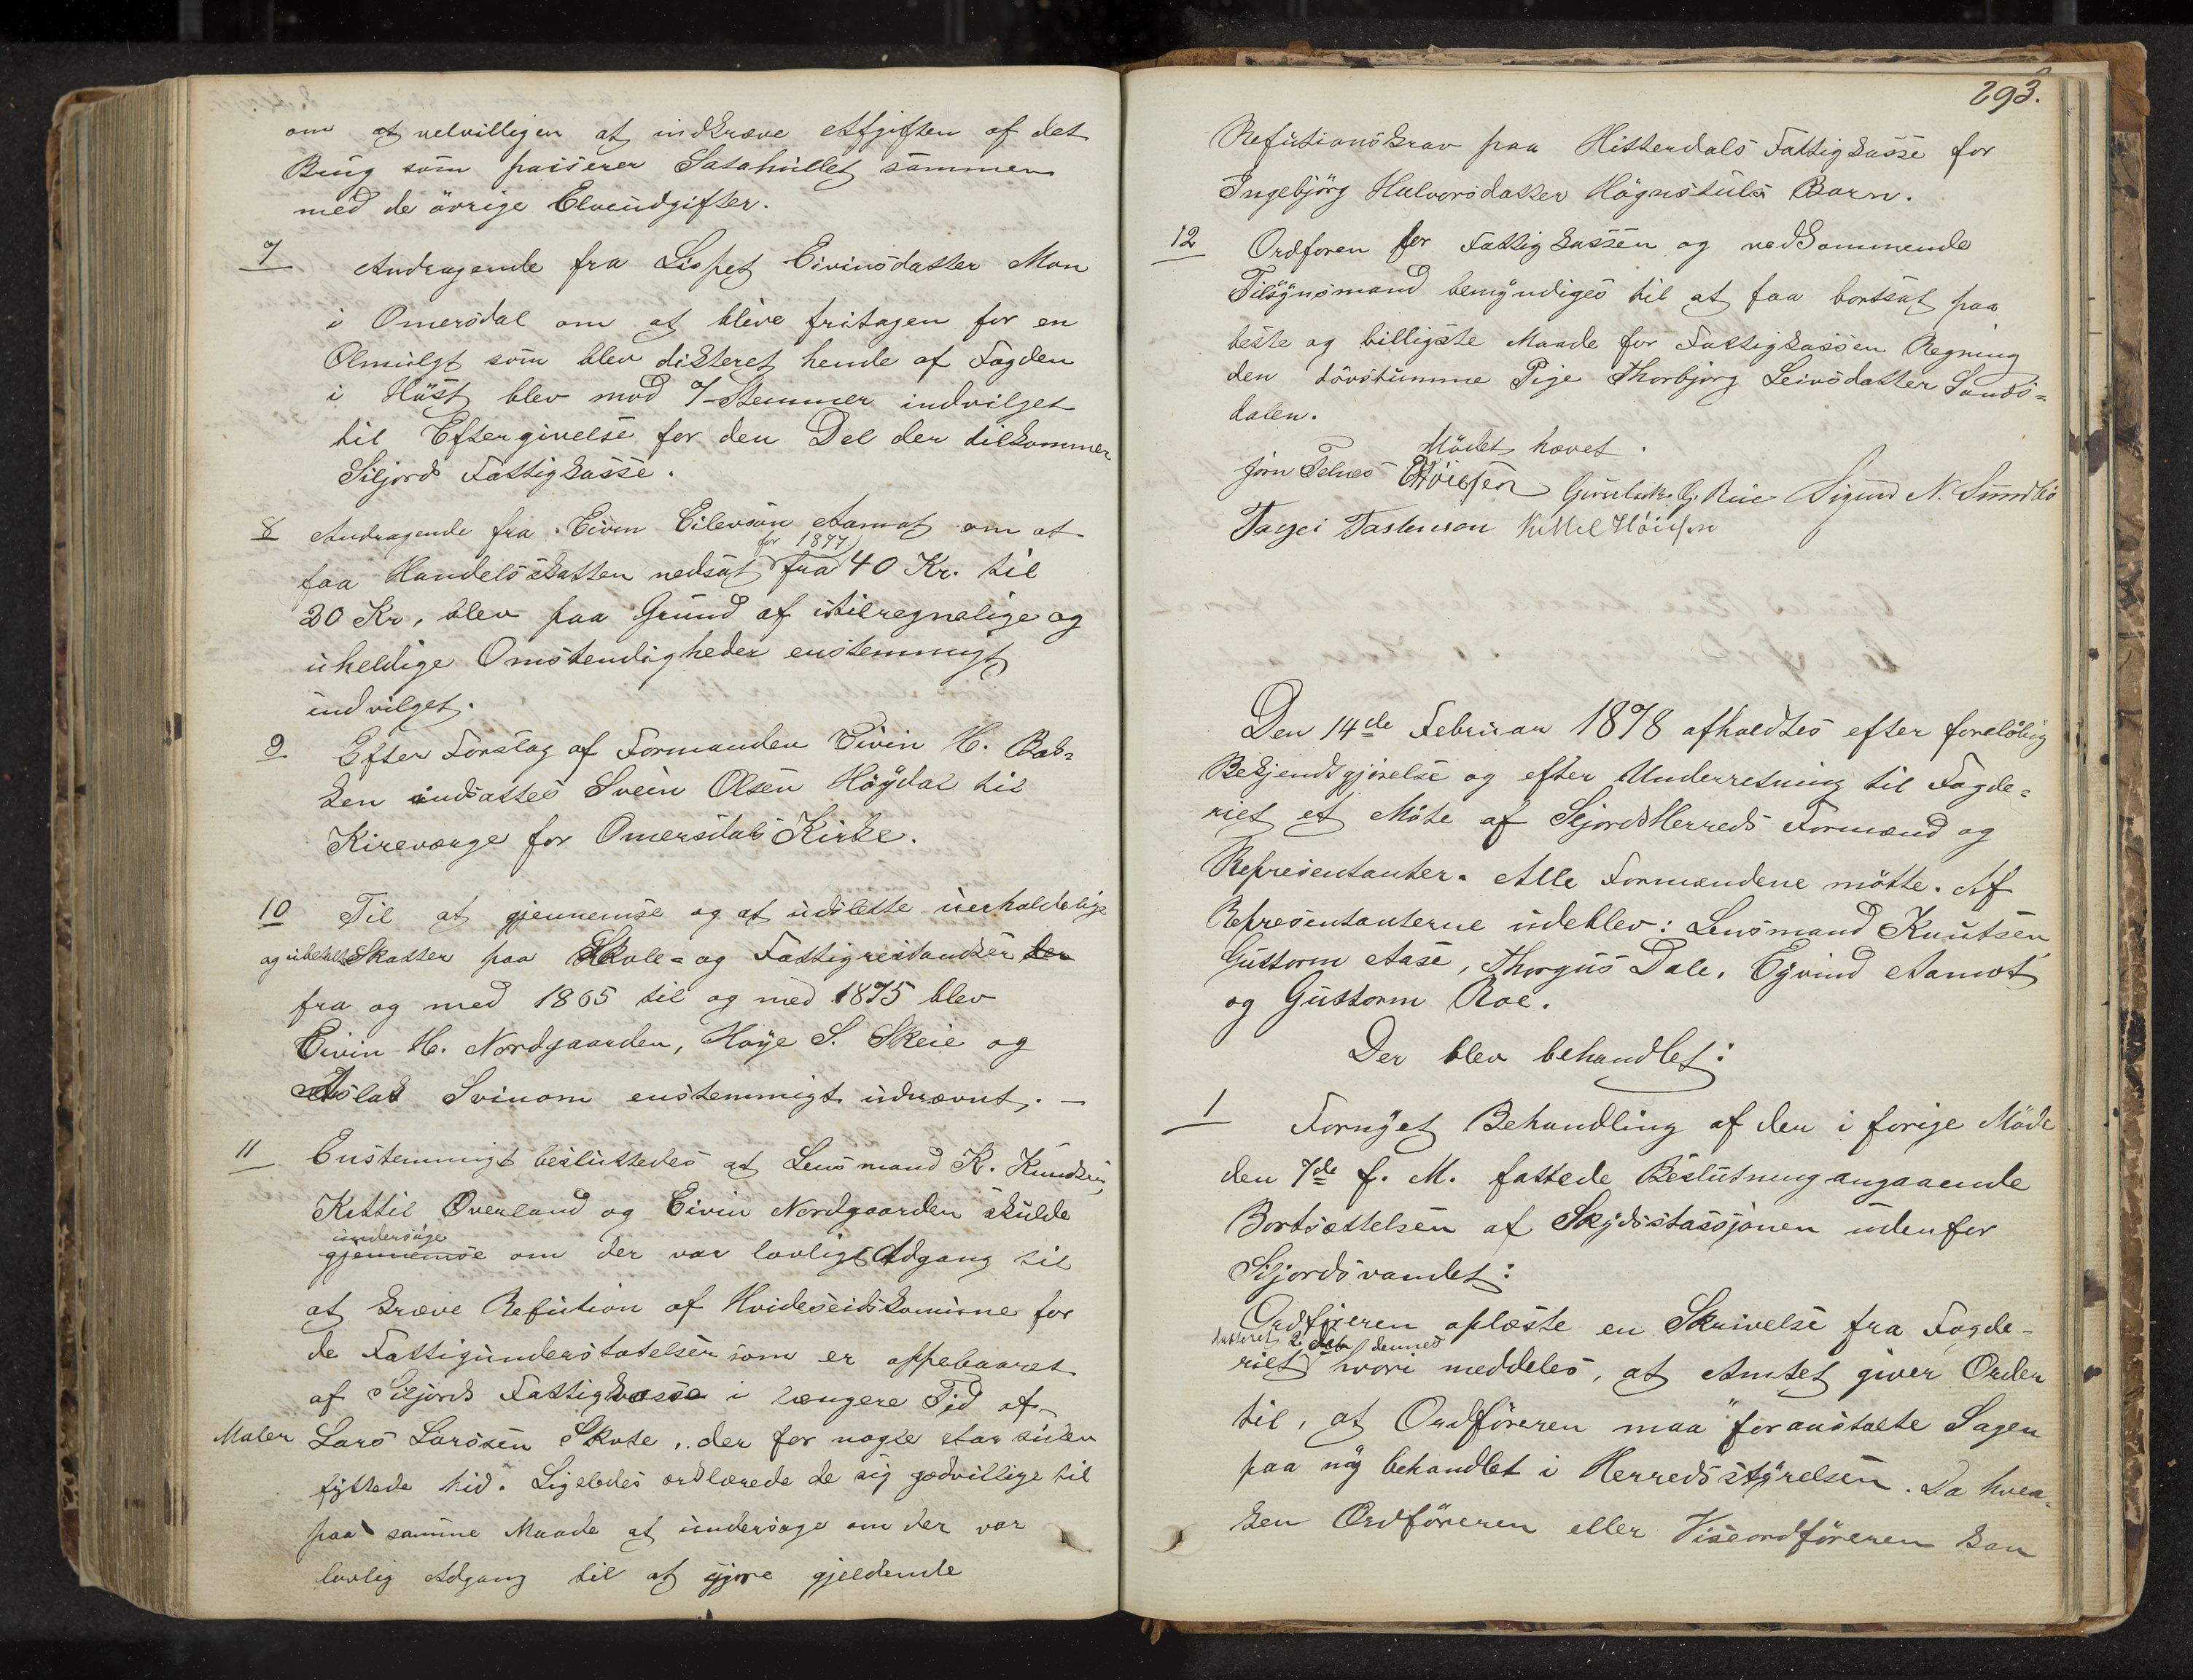 om at velvilligen at indkræve Afgiften af det
Brug som passerer Satahullet sammen
med de övrige Elveudgifter.
7 Andragende fra Lispet Eivinsdatter Mon
i Omersdal om at blive fritagen for en
Olmulgt som blev dikteret hende af Fogden
i Höst blev mod 7 Stemmer indvilget
til Eftergivelse for den Del der tilkommer
Siljords Fattigkasse.
8 Andragende fra Eivin Eilevsøn Aamot om at
for 1877
faa Handelsskatten nedsat fra 40 Kr. til
20 Kr, blev paa Grund af utilregnelige og
uheldige Omstendigheder enstemmigt
indvilget.
9 Efter Forslag af Formanden Eivin H. Bak-
ken indsattes Svein Olsen Höydal til
Kireværge for Omersdals Kirke.
10 Til at gjennemse og at udslette uerholdelige
og ubetalte Skatter paa Skole- og Fattigrestanser der
fra og med 1865 til og med 1875 blev
Eivin H. Nordgaarden, Höye S. Skeie og
Aslak Svinom enstemmigt udnævnt. —
11 Enstemmigt besluttedes at Lensmand K. Knudsen,
Kittil Øverland og Eivin Nordgaarden skulde
undersöge
gjennemse om der var lovligt Adgang til
at kræve Refution af Hvideseidskomune for
de Fattigunderstøtelser som er oppebaaret
af Siljords Fattigkasse i længere Tid af
Maler Lars Larssen Skote, der for nogle Aar siden
flyttede hid. Ligeledes erklærede de sig godvillige til
paa samme Maade at undersøge om der var
lovlig Adgang til at gjøre gjeldende
293.
Refutionskrav paa Hitterdals Fattigkasse for
Ingebjörg Halvorsdatter Högnstuls Barn.
12 Ordforen for Fattigkassen og vedkommende
Tilsynsmand bemyndiges til at faa bortsat paa
beste og billigste Maade for Fattigkassen Regning
den dövstumme Pige Thorbjörg Leivsdatter Sunds-
dalen.
Mödet hævet.
Jörn Telnes Gunleik G. Rue Sigurd N. Sundbö
Targei Taslenson Kittel Höiesen
Den 14de Februar 1878 afholdtes efter foreløbig
Bekjendtgjörelse og efter Underretning til Fogde-
riet et Möte af Siljords Herreds Formænd og
Representanter. Alle Formændene mötte. Af
Representanterne udeblev: Lensmand Knutsen
Guttorm Aase, Thorgus Dale, Eyvind Aamot
og Guttorm Roe.
Der blev behandlet:
1 Fornyet Behandling af den i forige Möde
den 7de f. M. fattede Beslutning angaaende
Bortsættelsen af Skydsstassjonen udenfor
Siljordsvandet:
Ordføreren oplæste en Skrivelse fra Fogde-
datteret 2den dennes
riet hvori meddeles, at Amtet giver Order
til, at Ordföreren maa "foranstalte Sagen
paa ny behandlet i Herredsstyrelsen. Da hver-
ken Ordföreren eller Viseordföreren kan